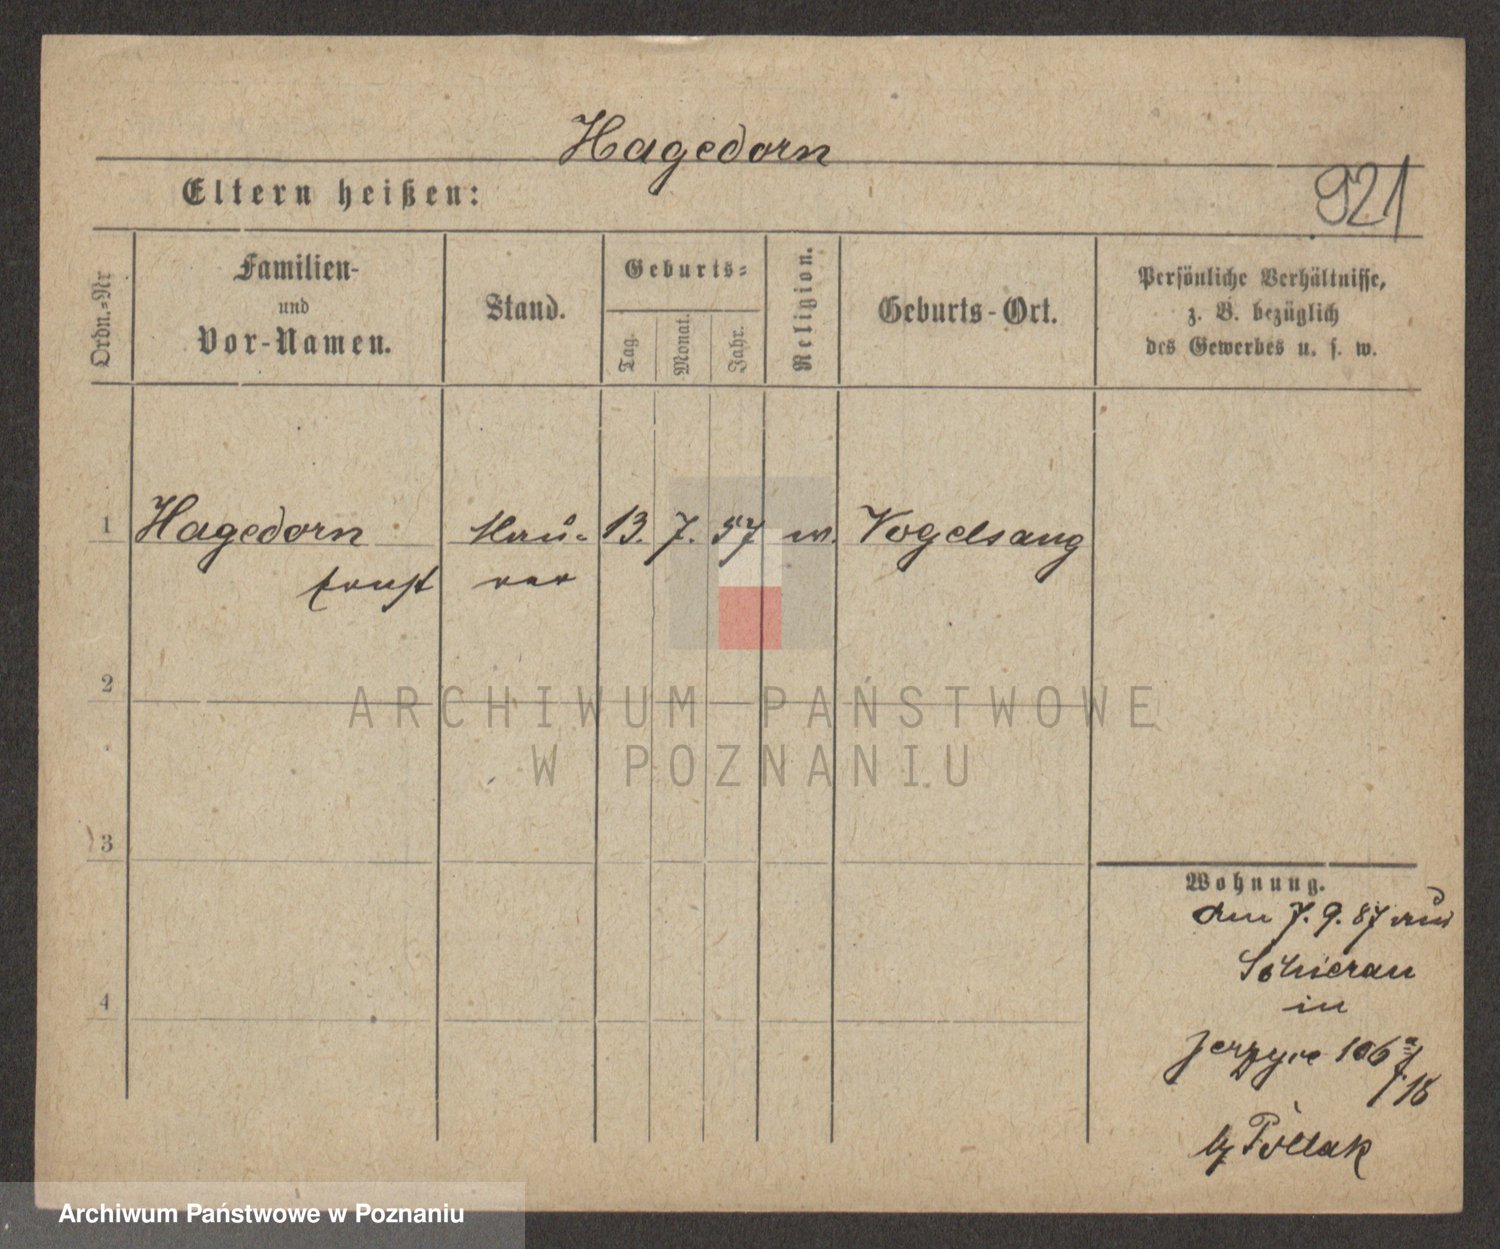 Hagedorn
921
Eltern heißen:
Ordn.-Nr
Familien-
und
Vor-Namen.
Stand.
Geburts-
Tag.
Monat.
Jahr.
Religion.
Geburts-Ort.
Persönliche Verhältnisse,
z. B. bezüglich
des Gewerbes u. s. w.
1 Hagedorn Mau- 13. 7. 57 Vogelsang
Ernst rer
2
ARCHIWUM PAŃSTWOWE
W POZNANIU
3
4
Wohnung.
am 7. 9. 87 aus
in
106
/18
Archiwum Państwowe w Poznaniu